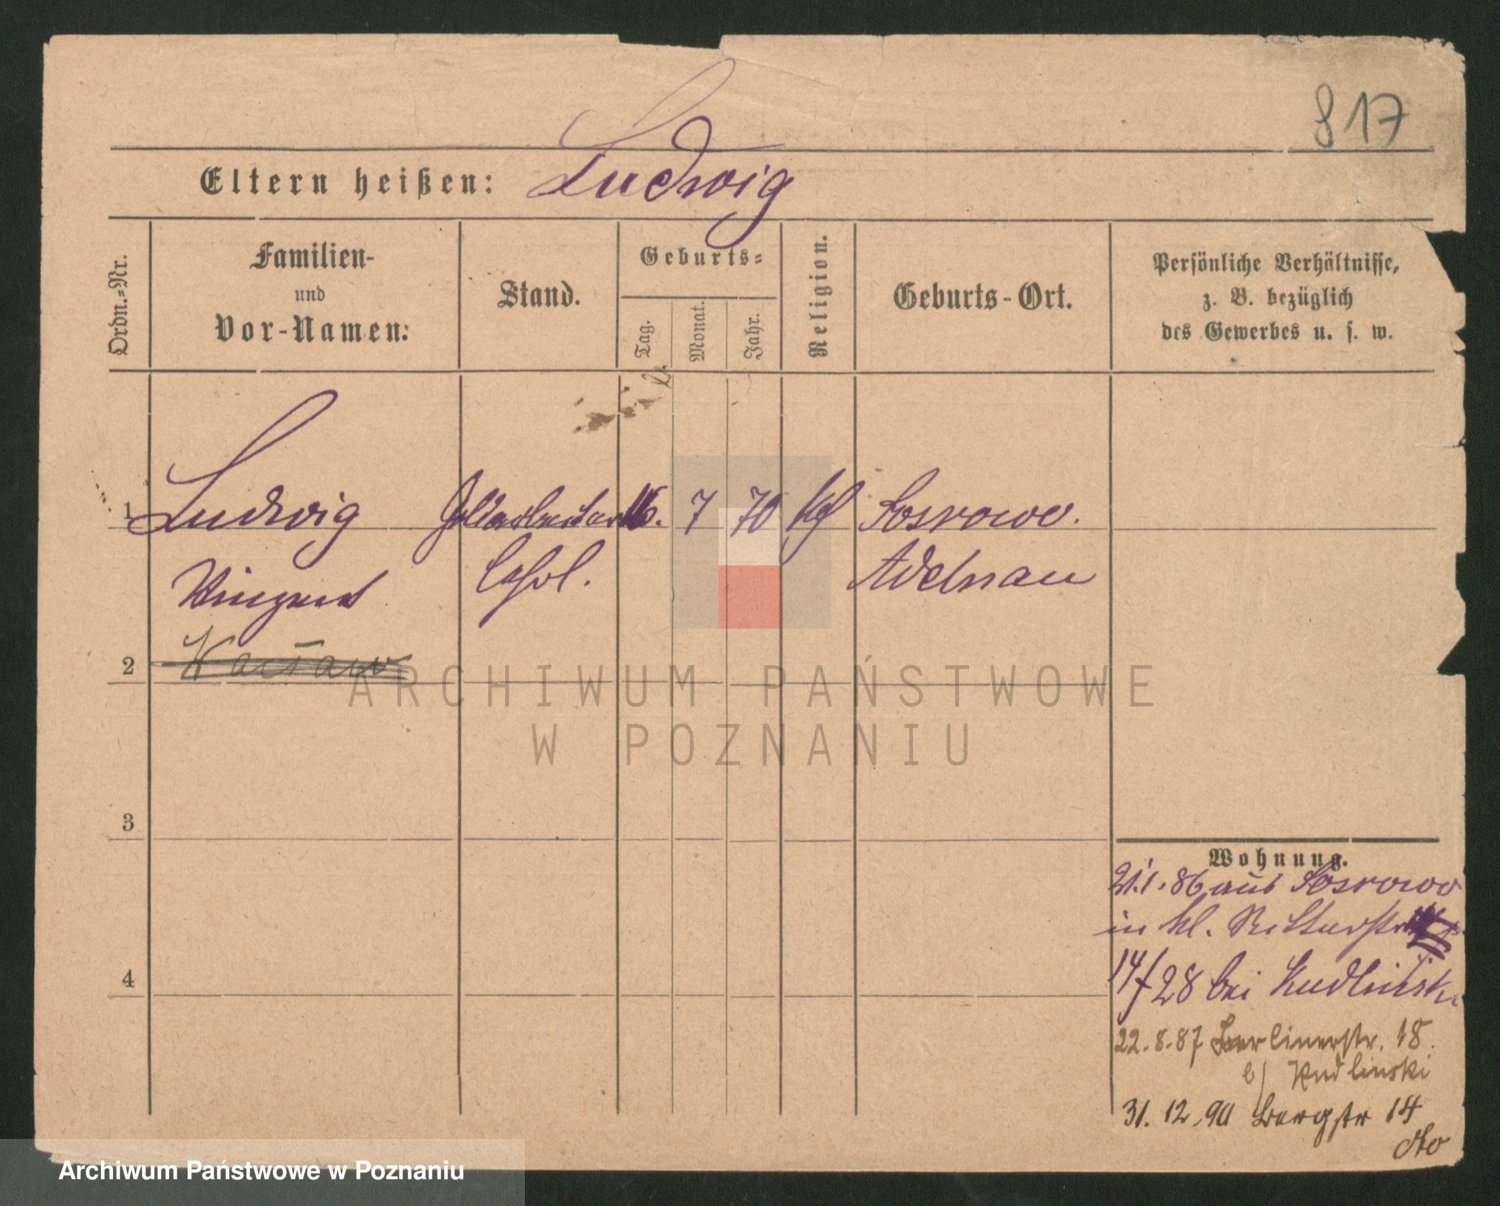 817
Eltern heißen: Ludwig
Ordn.=Nr.
Familien-
und
Vor-Namen:
Stand.
Geburts=
Tag.
Monat.
Jahr.
Religion.
Geburts-Ort.
Persönliche Verhältnisse,
z. B. bezüglich
des Gewerbes u. s. w.
1 Ludwig 16. 7 70 Kf Sosrowo.
Vinzent Adelnau
2
3
4
Wohnung.
21.1.86 aus Sosrowo
in kl. Ritterstr
14/ 28 bei Kudlinski
22.8.87 Berlinerstr. 18.
b/ Kudlinski
31.12.90 Bergstr 14
ARCHIWUM PAŃSTWOWE
W POZNANIU
Archiwum Państwowe w Poznaniu